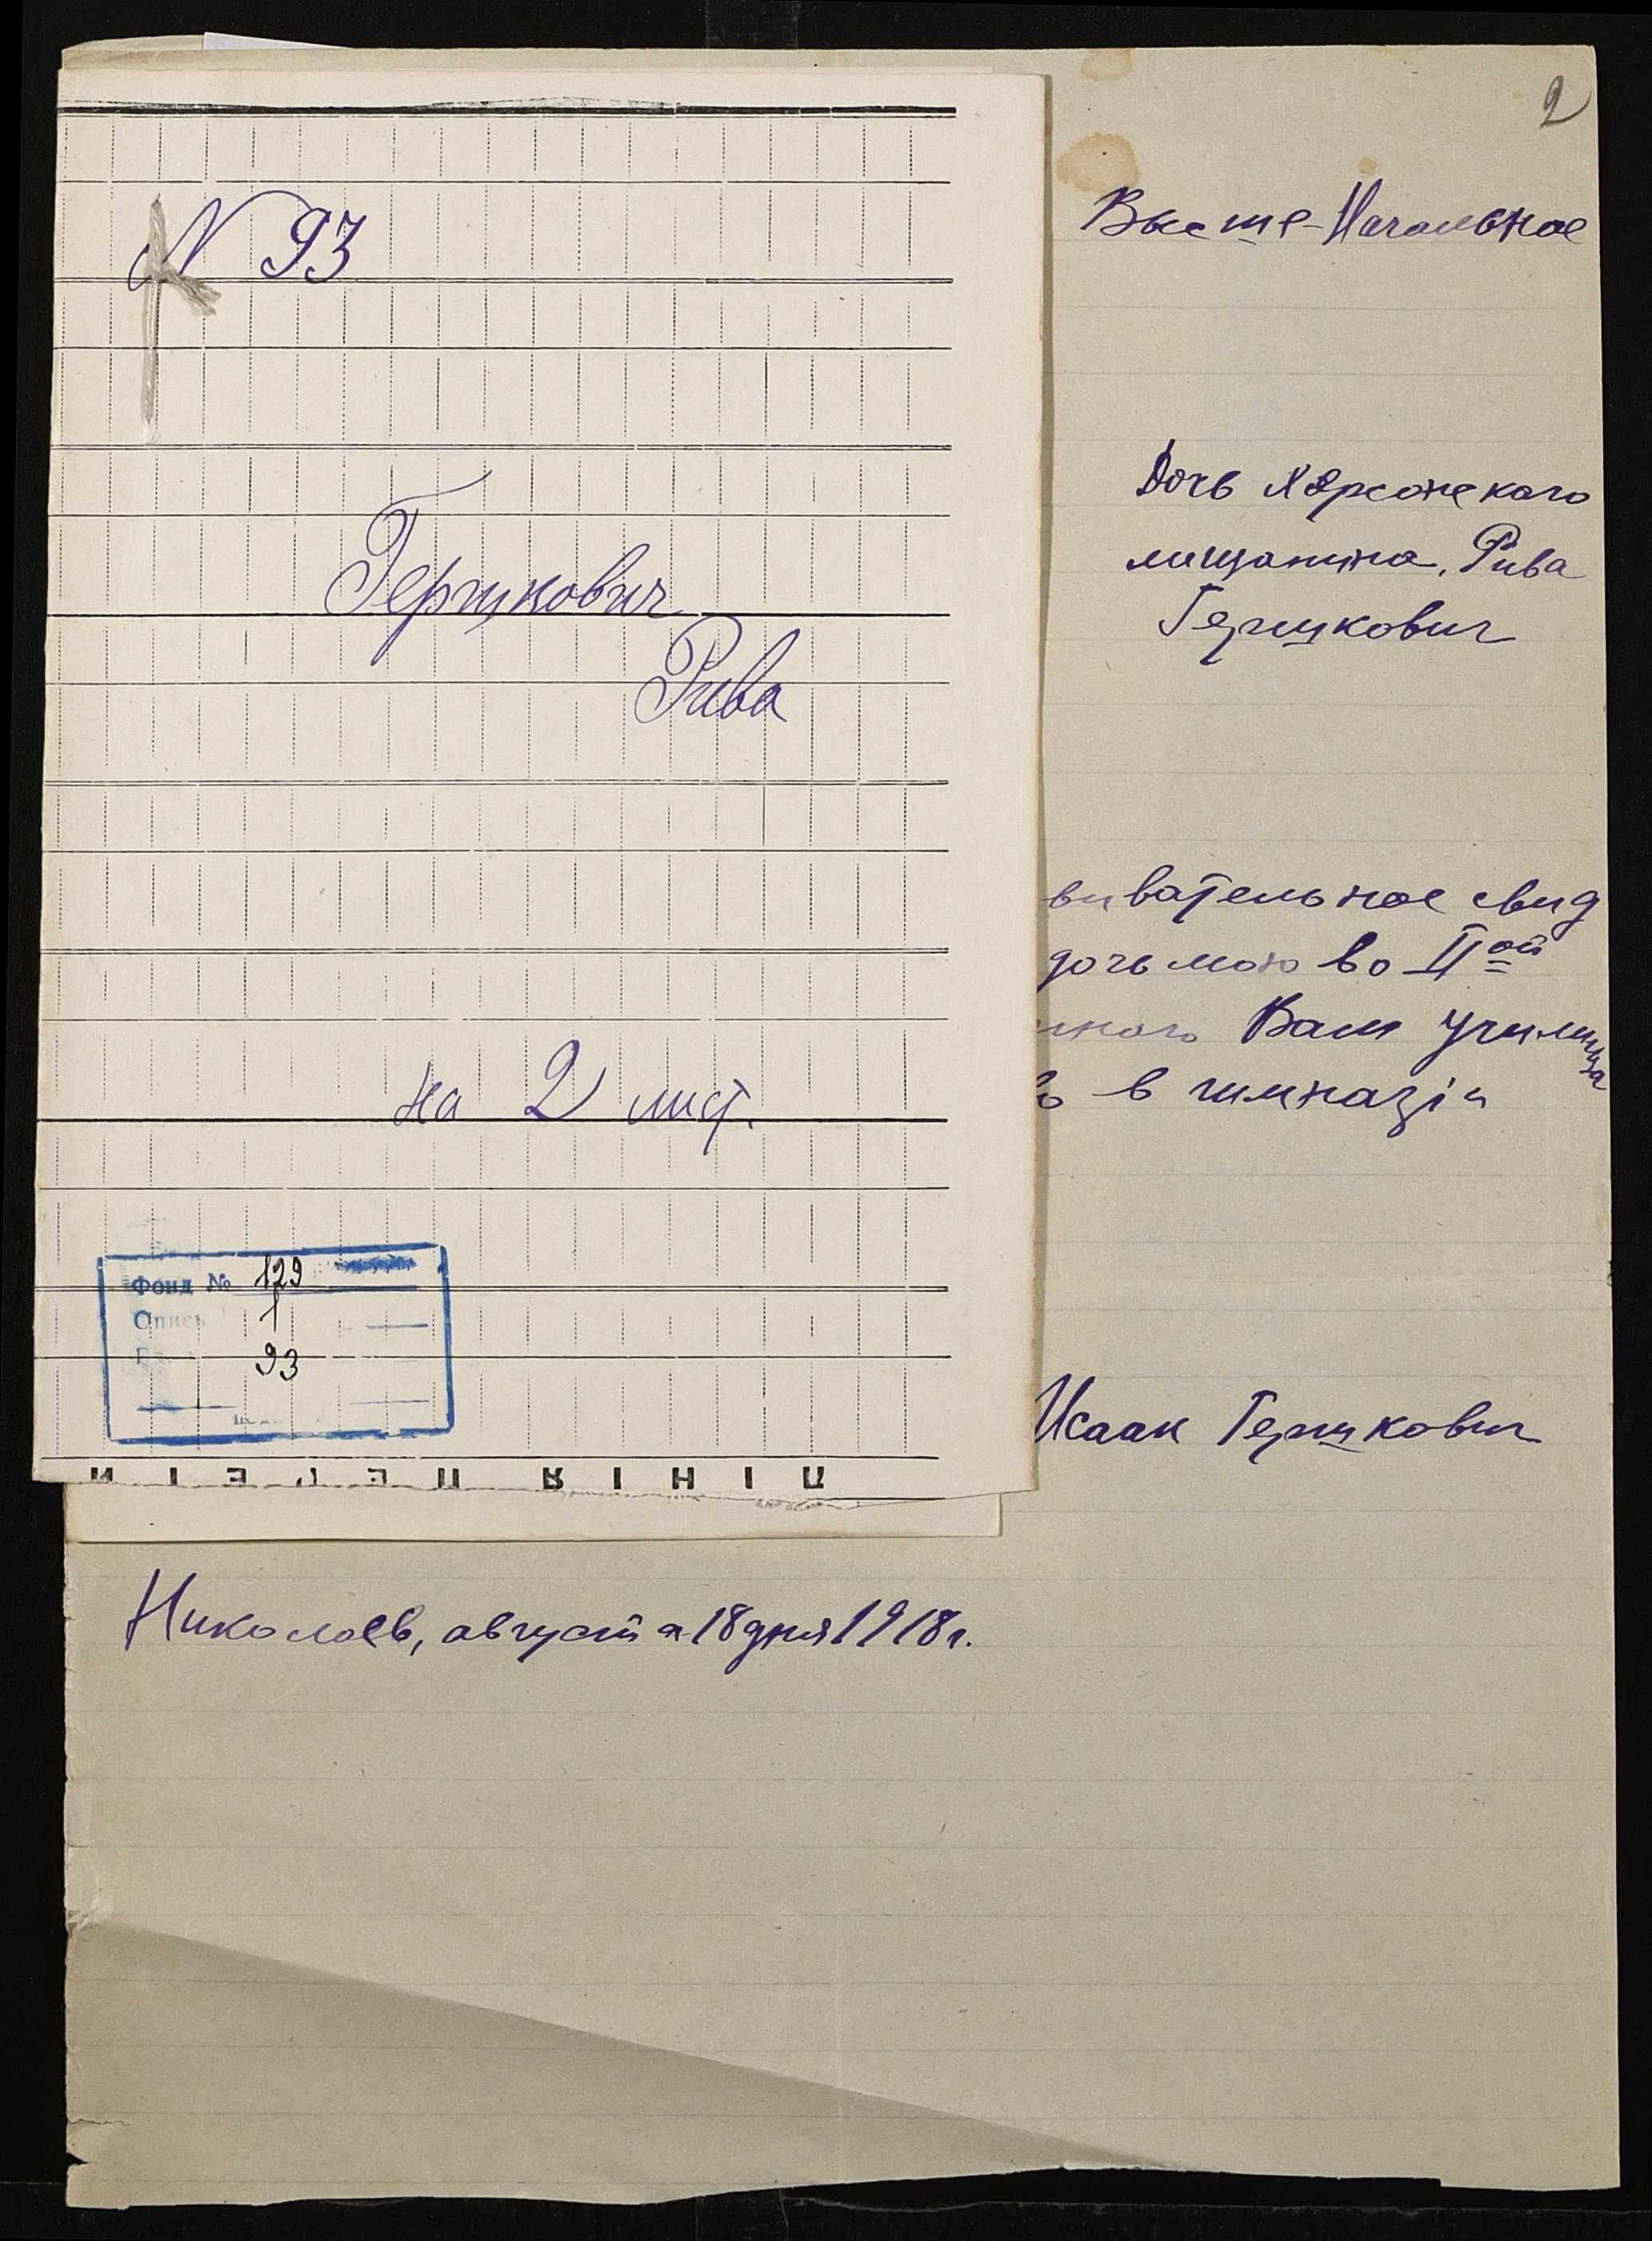 N 93
Гершкович
Рива
на 2 лист.
Фонд № 129
Опись 1
93
ЛІНІЯ
2
Высше-Начальное
Дочь Херсонскаго
мещанина, Рива
Гершкович
вивательное свид
дочь мою во II ой
нного Вам училища
в гимназіи
Исаак Гершкович
Николаев, августа 18 дня 1918 г.